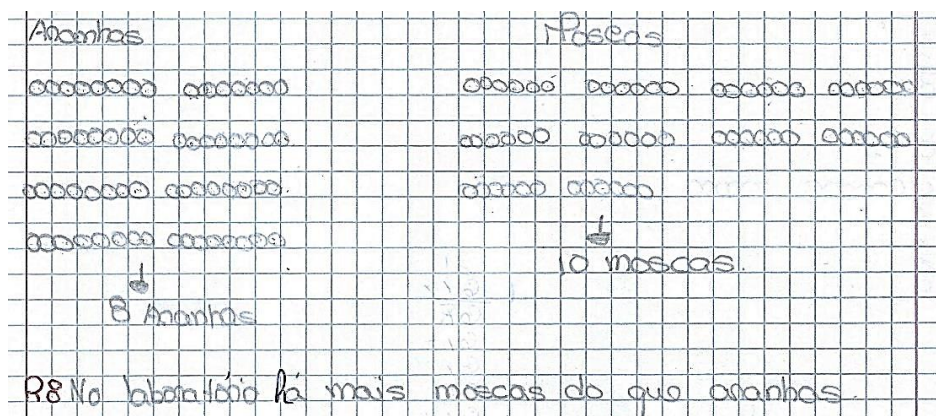 Aranhas
Moscas
10 moscas.
8 Aranhas
R: No laboratório há mais moscas do que aranhas.